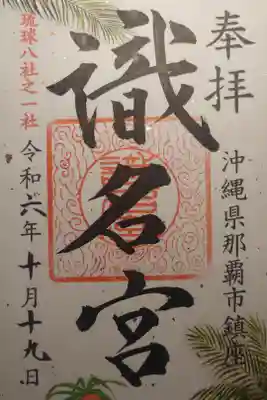 奉拝
沖縄県那覇市鎮座
識名宮
琉球八社之一社
令和六年十月十九日